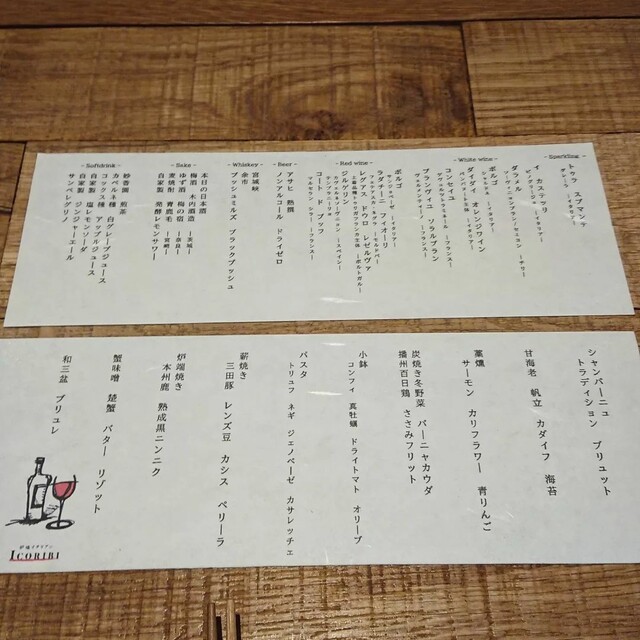 - Sparkling -
トゥラ スプマンテ
- White wine -
イ カステッリ
ダラムル
ダイダイ オレンジワイン
コンセイユ
ブランヴィニ ソラルブラン
- Red wine -
ボルゴ
ラダナーニ フィオーリ
レゲアス ドウロ レゼルヴァ
ジルゲリン
コート ド プッフ
- Beer -
アサヒ 熟撰
ノンアルコール ドライゼロ
- Whiskey -
宮城峡
余市
ブッシュミルズ ブラックブッシュ
- Sake -
本日の日本酒
梅酒 木内梅酒 ー茨城ー
ゆず酒 梅の宿 ー奈良ー
麦焼酎 青鹿毛 ー宮崎ー
自家製 発酵レモンサワー
- Softdrink -
妙香園 煎茶
カベルネ種 白グレープジュース
コックス種 アップルジュース
自家製 塩レモンソーダ
自家製 ジンジャーエール
サンペレグリノ
シャンパーニュ
トラディション ブリュット
甘海老 帆立 カダイフ 海苔
藁燻
サーモン カリフラワー 青りんご
炭焼き冬野菜 バーニャカウダ
播州百日鶏 ささみフリット
小鉢
コンフィ 真牡蠣 ドライトマト オリーブ
パスタ
トリュフ ネギ ジェノベーゼ カサレッチェ
薪焼き
三田豚 レンズ豆 カシス ペリーラ
炉端焼き
本州鹿 熟成黒ニンニク
蟹味噌 楚蟹 バター リゾット
和三盆 ブリュレ
炉端イタリアン
ICORIBI